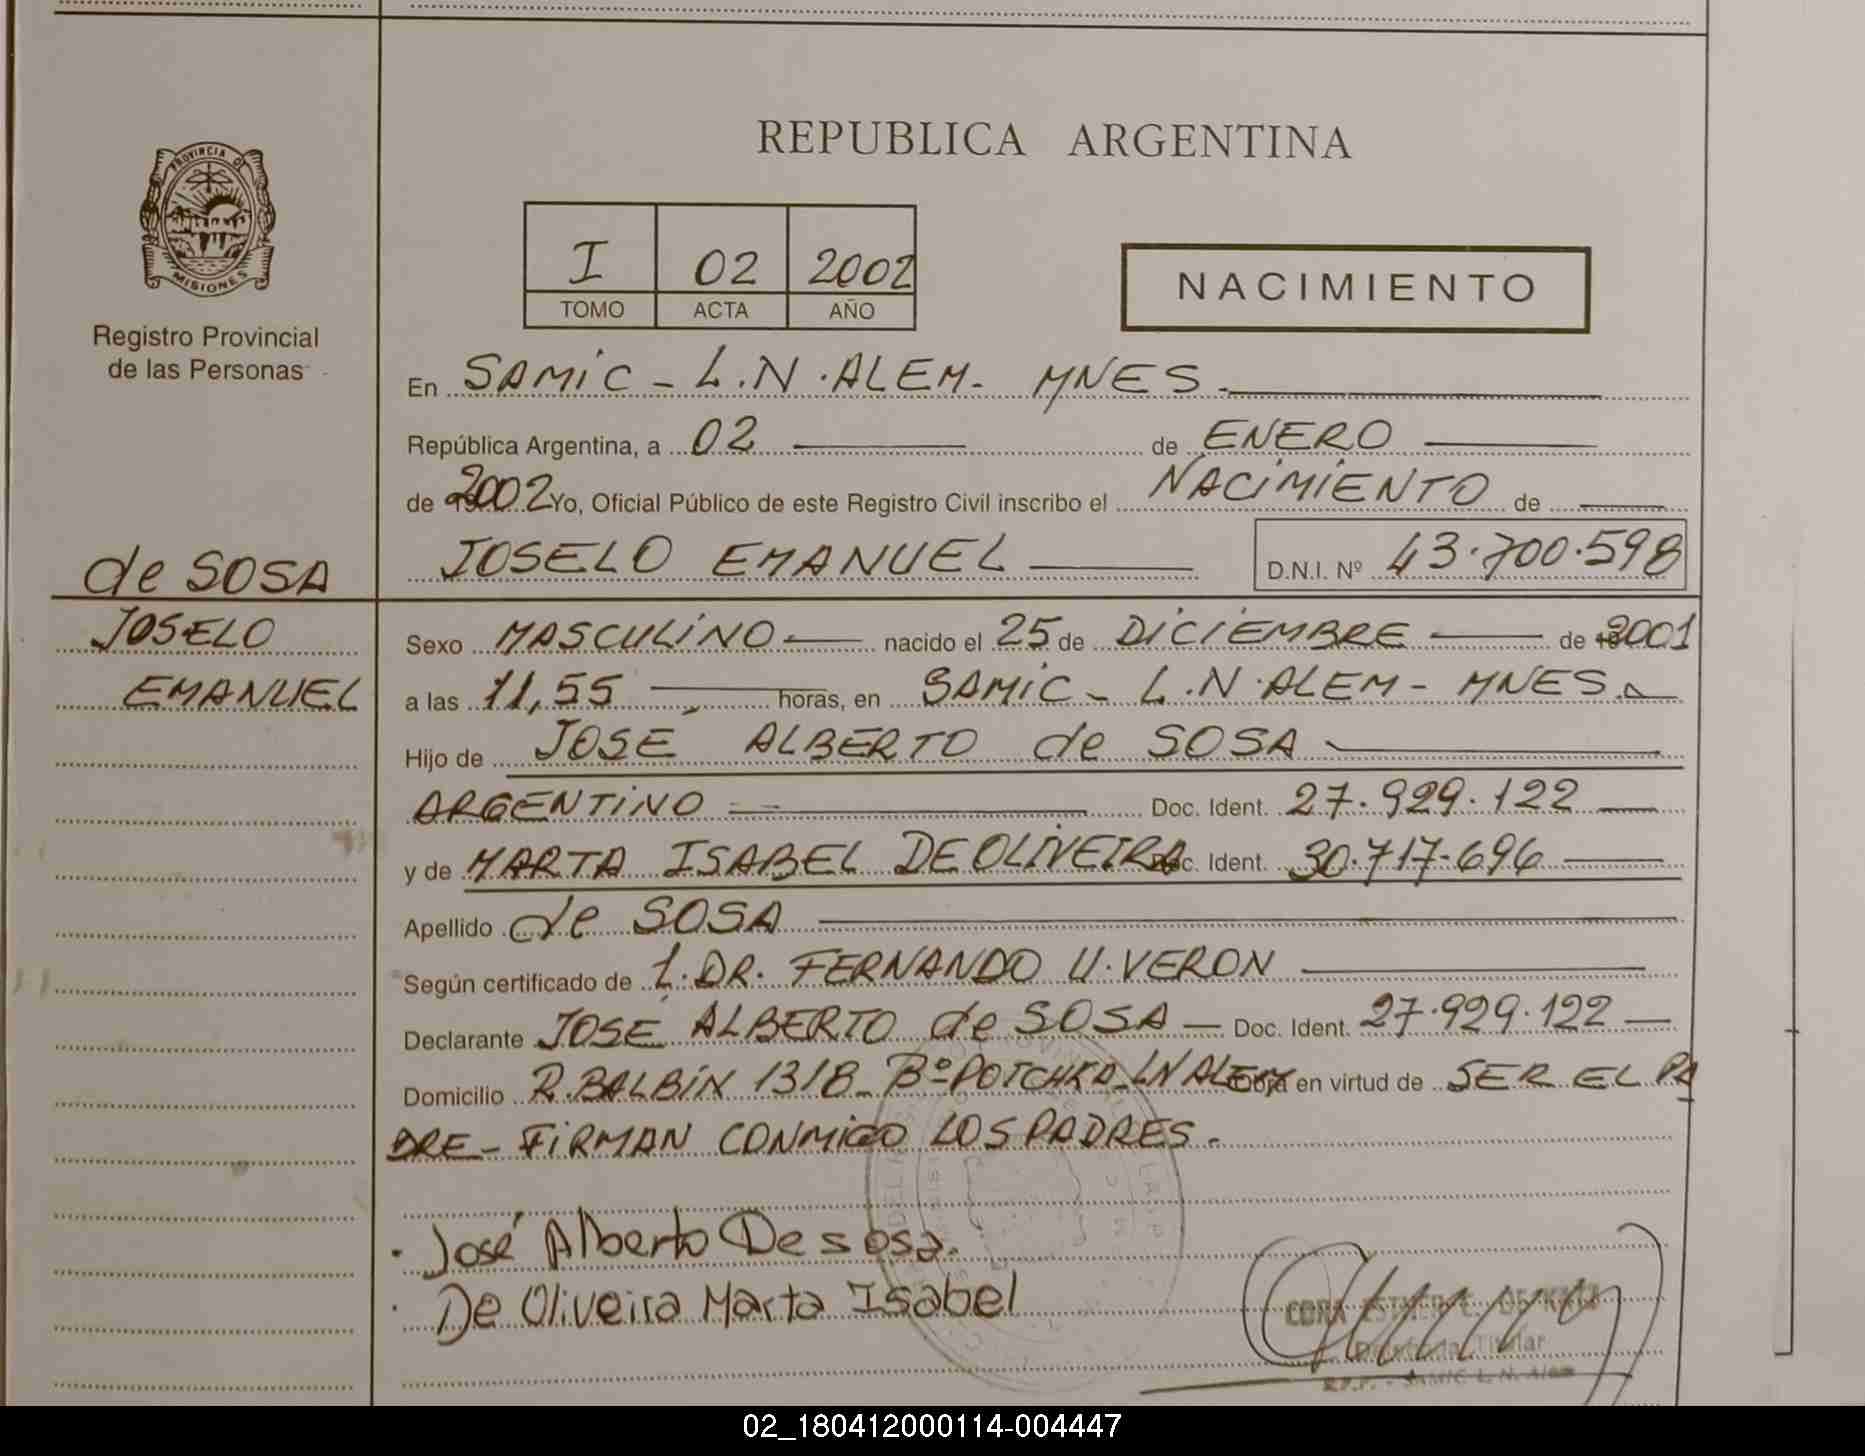 REPUBLICA ARGENTINA
PROVINCIA DE
MISIONES
Registro Provincial
de las Personas
I 02 2002
TOMO ACTA AÑO
NACIMIENTO
En SAMIC - L.N.ALEM- MNES.-
República Argentina, a 02 de ENERO
de 2002 Yo, Oficial Público de este Registro Civil inscribo el NACIMIENTO de
JOSELO EMANUEL D.N.I. Nº 43.700.598
de SOSA
JOSELO
EMANUEL
Sexo MASCULINO nacido el 25 de DICIEMBRE de 2001
a las 11,55 horas, en SAMIC - L.N.ALEM - MNES.
Hijo de JOSÉ ALBERTO de SOSA
ARGENTINO Doc. Ident. 27.929.122
y de MARTA ISABEL DE OLIVEIRA Doc. Ident. 30.717.696
Apellido de SOSA
Según certificado de L. DR. FERNANDO U. VERON
Declarante JOSÉ ALBERTO de SOSA - Doc. Ident. 27.929.122
Domicilio R.BALBÍN 1318- Bº POTCHKA-LN ALEM Obra en virtud de SER EL PA
DRE - FIRMAN CONMIGO LOS PADRES.
José Alberto De sosa.
De Oliveira Marta Isabel
Titular
SAMIC L. N. Alem
02_180412000114-004447